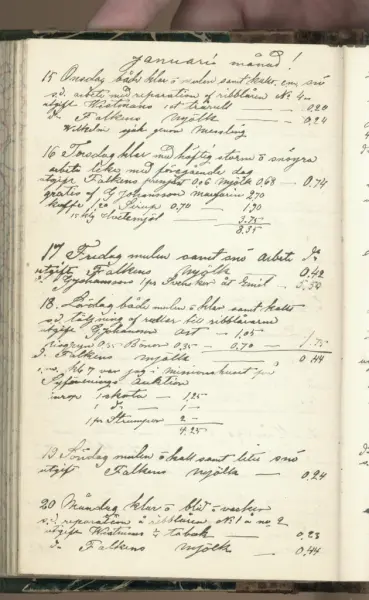 januari månad!
15 Onsdag både klar o mulen samt kallt, snö
s.d. arbete med reparation af ribblåren No 4
utgift 1st 0,20
d. Falkens mjölk — 0,24
Wilhelm sjuk genom Messling
16 Torsdag klar med häftig storm o snöyra
arbete lika med föregående dag
utgift Falkens 0,06 mjölk 0,68 — 0,74
gratis af G Johansson margarin 2,70
kaffe Sirup 0,70 — 1,90
15 kg Hvetemjöl 3.75
8.35
17 Fredag mulen samt snö arbete d:o
utgift Falkens mjölk 0,42
d. G Johanssons 1 par at Emil — 5,50
18. Lördag både mulen o klar samt kallt
s.d. af till ribblårarne
utgift G Johanson ost — 1,05
Risgryn 0,35 Bönor 0,35 — 0,70 — 1,75
d. Falkens mjölk — 0,44
kl 7 var jag i missionshuset på
Syförenings Auktion
inrop 1 skjorta — 1,25
1 d:o — 1 —
1 par Strumpor 2 —
4,25
19 Söndag mulen o kall samt litet snö
utgift Falkens mjölk — 0,24
20 Måndag klar o blid o vacker
s.d. reparation å ribblåren No 1 o no 2
utgift tobak — 0,23
d. Falkens mjölk — 0,44